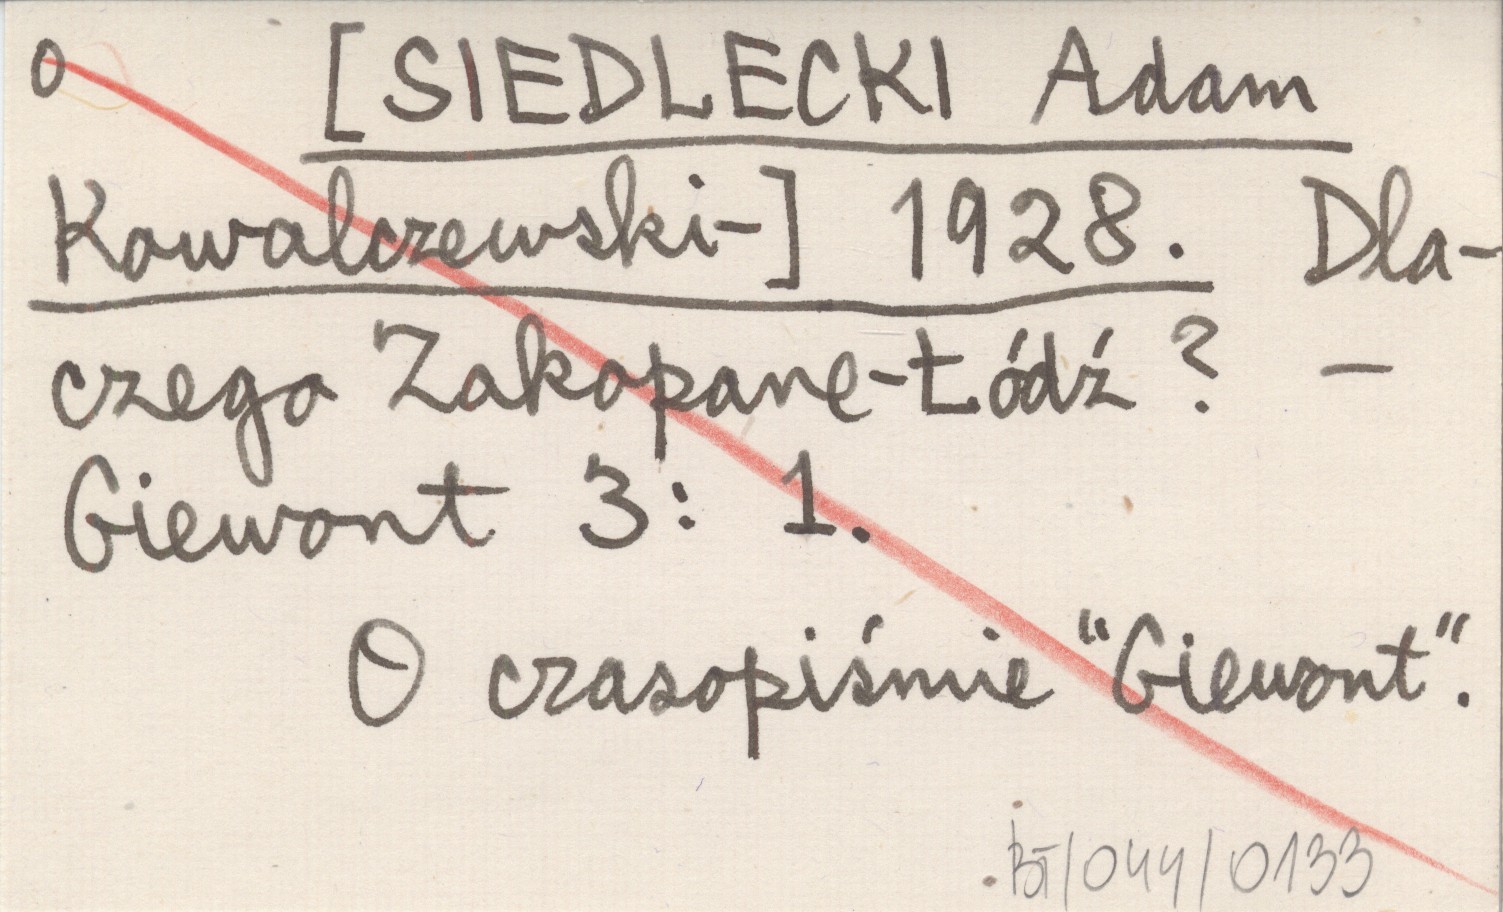 o [SIEDLECKI Adam
Kowalczewski-] 1928. Dla-
czego Zakopane-Łódź? –
Giewont 3: 1.
O czasopiśmie "Giewont".
BT/044/0133